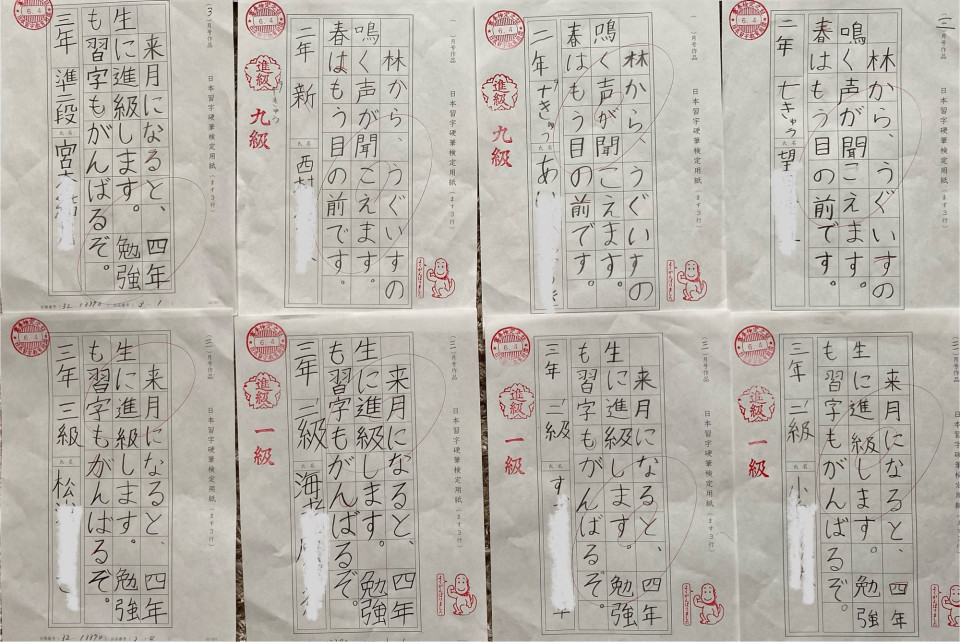 (3)月号作品
日本習字硬筆検定用紙(ます3行)
来月になると、四年
生に進級します。勉強
も習字もがんばるぞ。
三年 準二段 氏名 宮本
6.4
一月号作品
日本習字硬筆検定用紙(ます3行)
林から、うぐいすの
鳴く声が聞こえます。
春はもう目の前です。
二年 新 氏名 西村
6.4
進級
九級
一月号作品
日本習字硬筆検定用紙(ます3行)
林から、うぐいすの
鳴く声が聞こえます。
春はもう目の前です。
二年 十きゅう 氏名 あ
6.4
進級
九級
(三)月号作品
日本習字硬筆検定用紙(ます3行)
林から、うぐいすの
鳴く声が聞こえます。
春はもう目の前です。
二年 七きゅう 氏名 望
6.4
(三)月号作品
日本習字硬筆検定用紙(ます3行)
来月になると、四年
生に進級します。勉強
も習字もがんばるぞ。
三年 三級 氏名 松
6.4
(三)月号作品
日本習字硬筆検定用紙(ます3行)
来月になると、四年
生に進級します。勉強
も習字もがんばるぞ。
三年 二級 氏名 海老
6.4
進級
一級
(三)月号作品
日本習字硬筆検定用紙(ます3行)
来月になると、四年
生に進級します。勉強
も習字もがんばるぞ。
三年 二級 氏名 す
6.4
進級
一級
(三)月号作品
日本習字硬筆検定用紙(ます3行)
来月になると、四年
生に進級します。勉強
も習字もがんばるぞ。
三年 二級 氏名 小
6.4
進級
一級